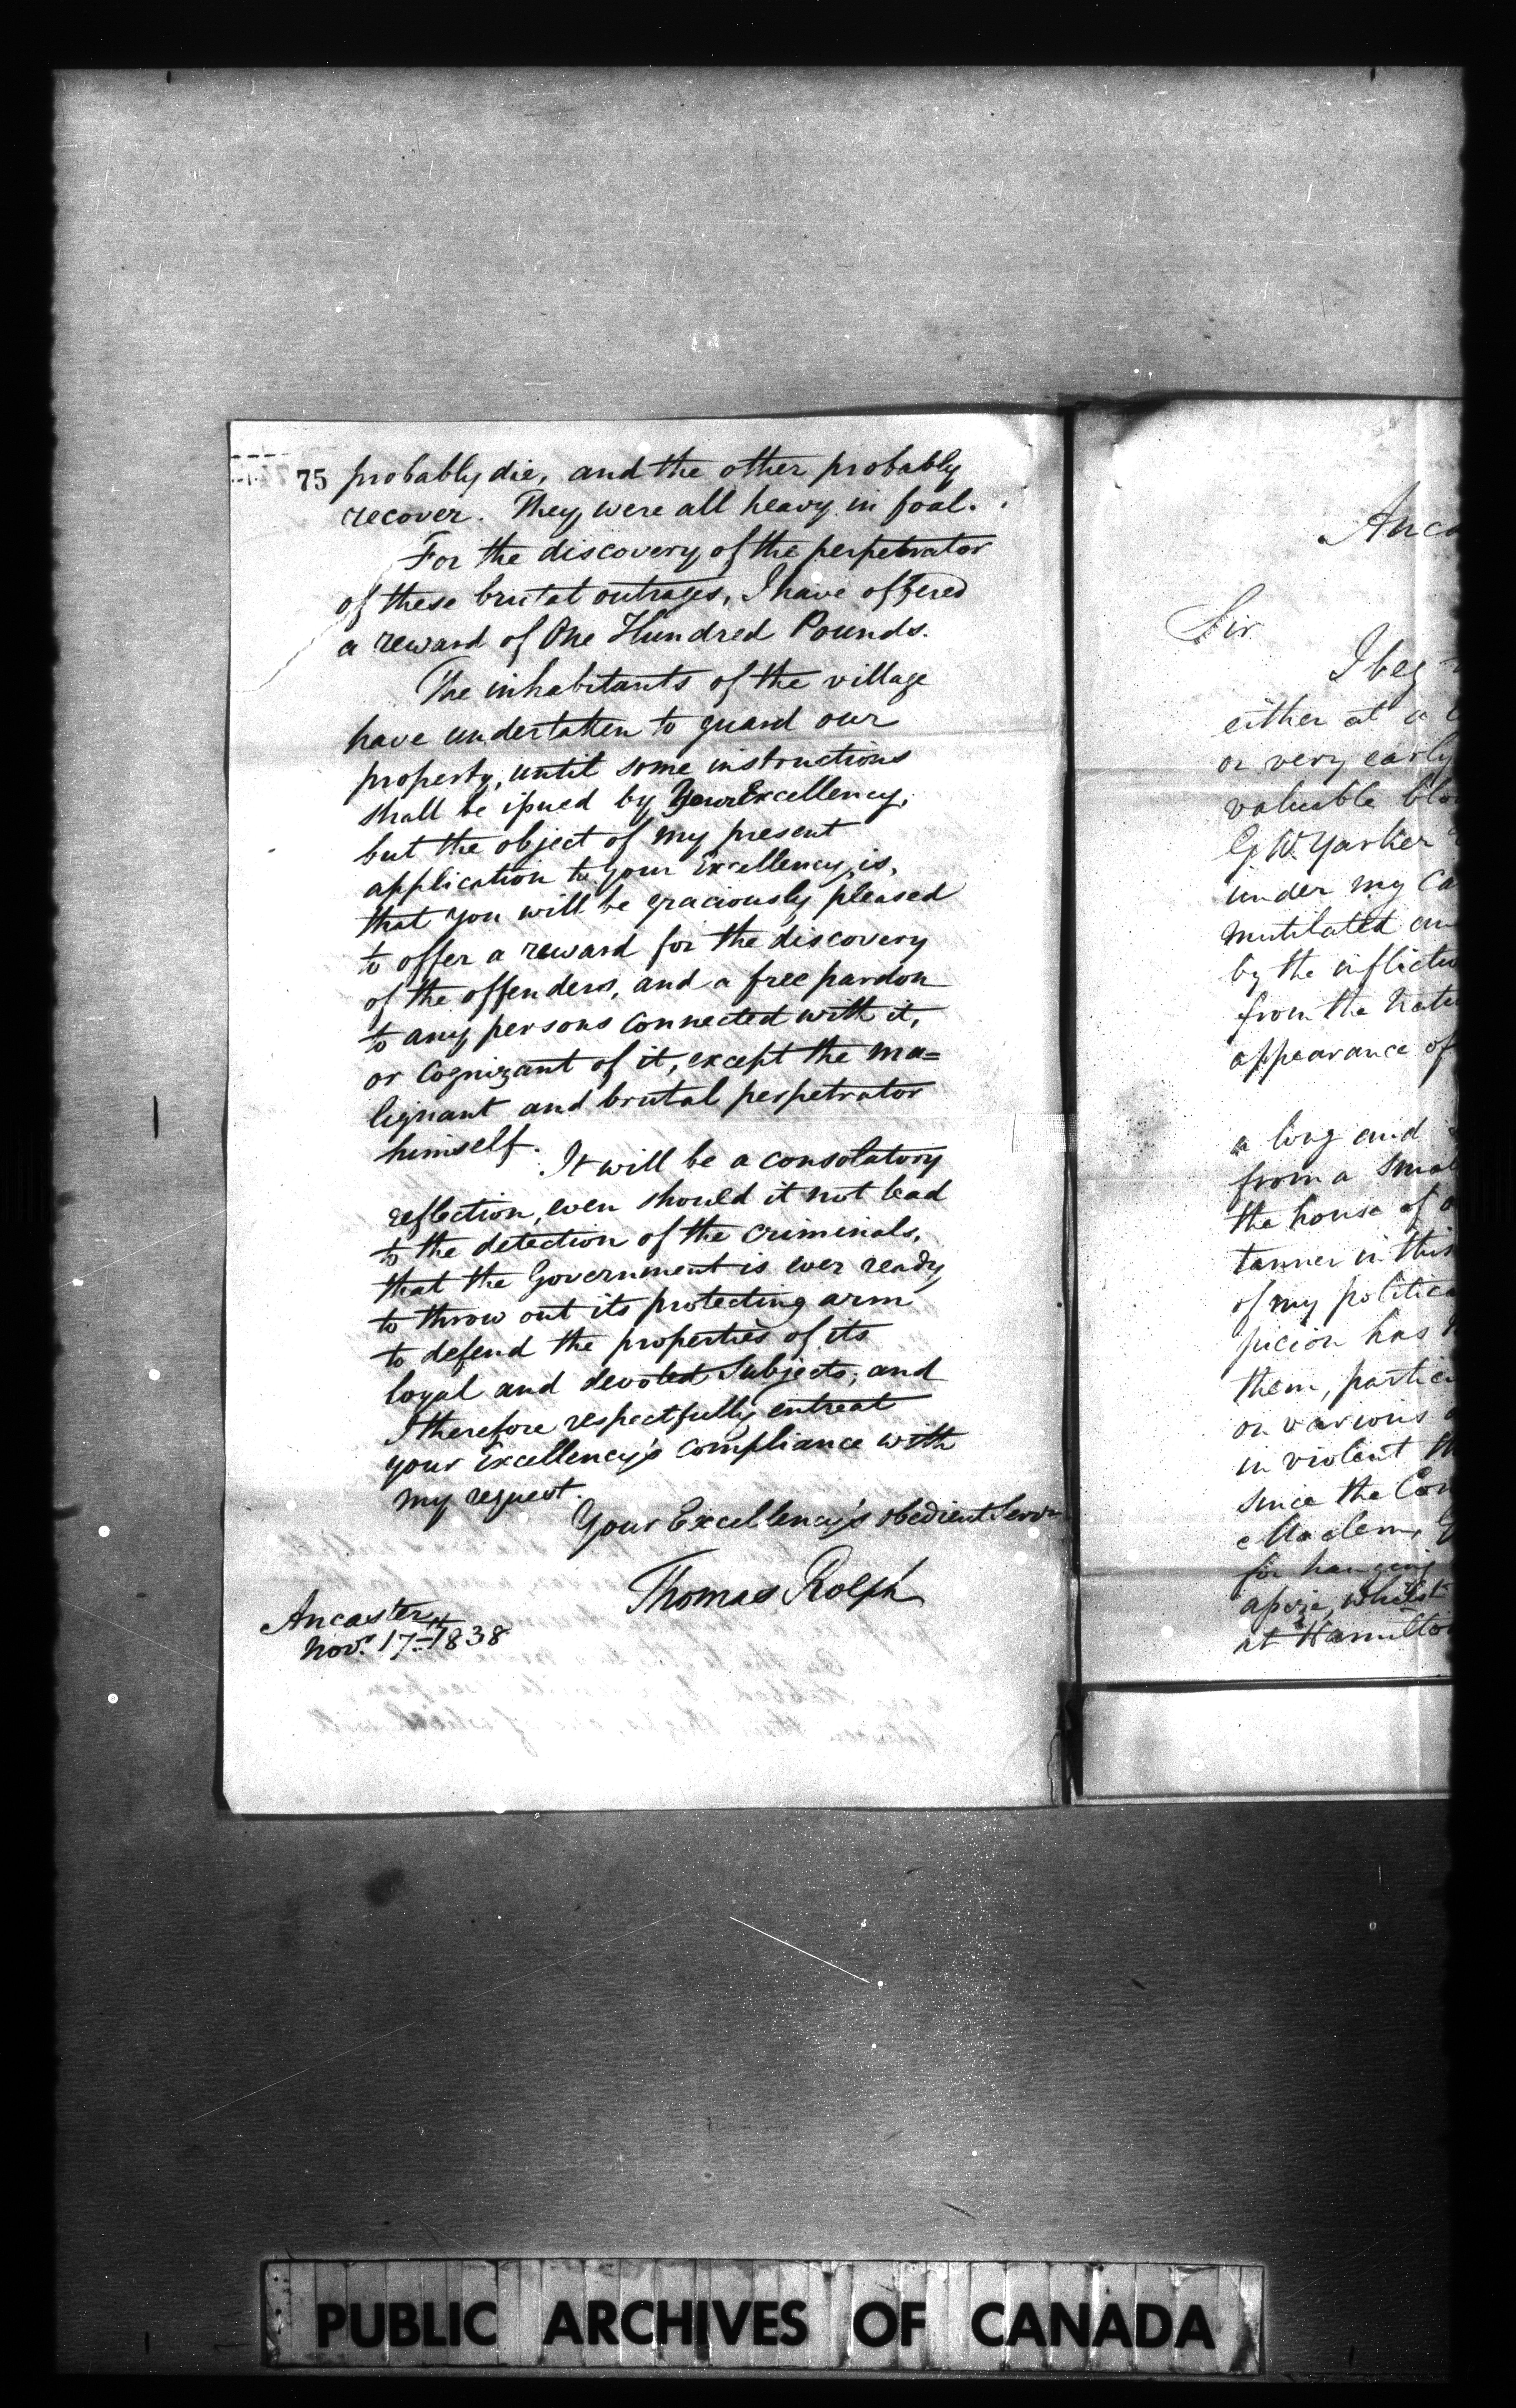 75 probably die, and the other probably
recover. They were all heavy in foal.
For the discovery of the perpetrator
of these brutal outrages, I have offered
a reward of One Hundred Pounds.
The inhabitants of the village
have undertaken to guard our
property, until some instructions
shall be issued by Your Excellency,
but the object of my present
application to your Excellency, is,
that you will be graciously pleased
to offer a reward for the discovery
of the offenders, and a free pardon
to any persons connected with it,
or cognizant of it, except the ma=
lignant and brutal perpetrator
himself.
It will be a consolatory
reflection, even should it not lead
to the detection of the criminals,
that the Government is ever ready
to throw out its protecting arm
to defend the properties of its
loyal and devoted Subjects; and
I therefore respectfully entreat
your Excellency's compliance with
my request.
Your Excellency's obedient Servt
Thomas Rolph
Ancaster
Novr. 17th 1838
Anca
Sir
I beg
either at a
or very early
valuable blo
G. W. Yarker
under my ca
mutilated an
by the inflictio
from the natu
appearance of
a long and
from a smal
the house of
tanner in this
of my politica
picion has
them, particu
on various
in violent
since the Con
for hanging
whilst
at Hamilton
PUBLIC ARCHIVES OF CANADA